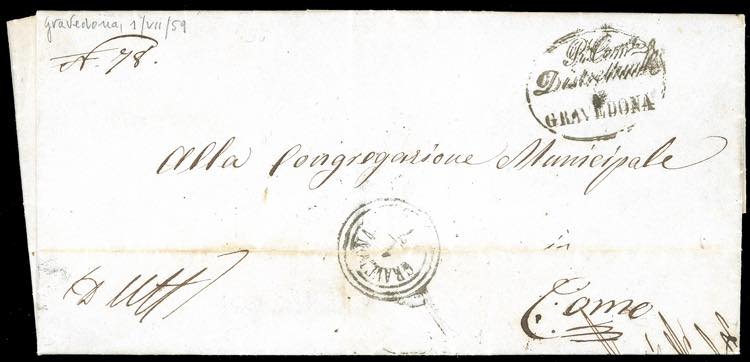 Gravedona, 1/VII/59
N. 78.
R. Com.
Distrettuale
GRAVEDONA
Alla Congregazione Municipale
GRAVEDONA
in
D'Uff
Como